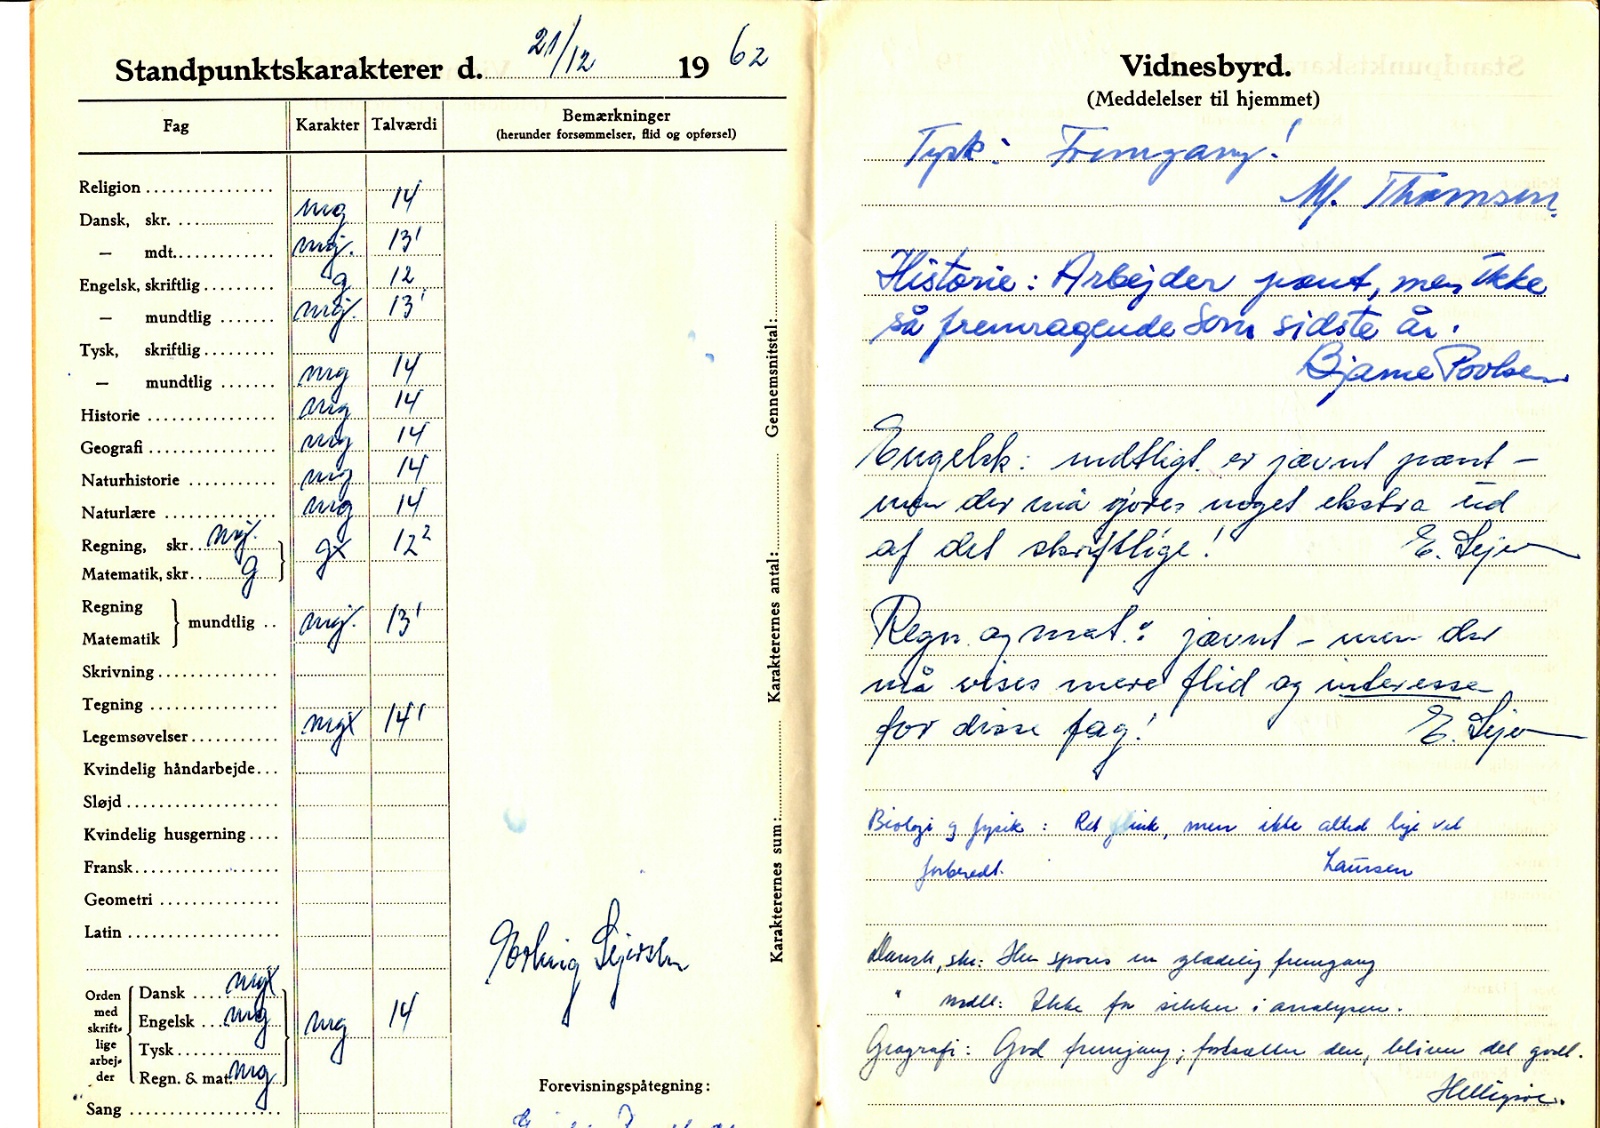 Standpunktskarakterer d. 21/12 1962
Fag Karakter Talværdi Bemærkninger
(herunder forsømmelser, flid og opførsel)
Religion
Dansk, skr. mg 14
— mdt. mg÷ 13¹
Engelsk, skriftlig g 12
— mundtlig mg÷ 13¹
Tysk, skriftlig
— mundtlig mg 14
Historie mg 14
Geografi mg 14
Naturhistorie mg 14
Naturlære mg 14
Regning, skr. mg÷
Matematik, skr. g gx 12²
Regning
Matematik mundtlig mg÷ 13¹
Skrivning
Tegning
Legemsøvelser mgx 14¹
Kvindelig håndarbejde
Sløjd
Kvindelig husgerning
Fransk
Geometri
Latin
Orden med skriftlige arbejder
Dansk mgx
Engelsk mg mg 14
Tysk
Regn. & mat. mg
Sang
Karakterernes sum: Karakterernes antal: Gennemsnitstal:
Sejersen
Forevisningspåtegning:
Vidnesbyrd.
(Meddelelser til hjemmet)
Tysk: Fremgang!
M. Thomsen
Historie: Arbejder pænt, men ikke
så fremragende som sidste år.
Bjarne Povlsen
Engelsk: mdtligt er jævnt pænt –
men der må gøres noget ekstra ud
af det skriftlige! E. Sejer
Regn. og mat.: jævnt – men der
må vises mere flid og interesse
for disse fag! E. Sejer
Biologi og fysik: Ret flink, men ikke altid lige vel
forberedt. Laursen
Dansk, skr: Her spores en glædelig fremgang
" mdtl: Ikke for sikker i analysen.
Geografi: God fremgang; fortsætter den, bliver det godt.